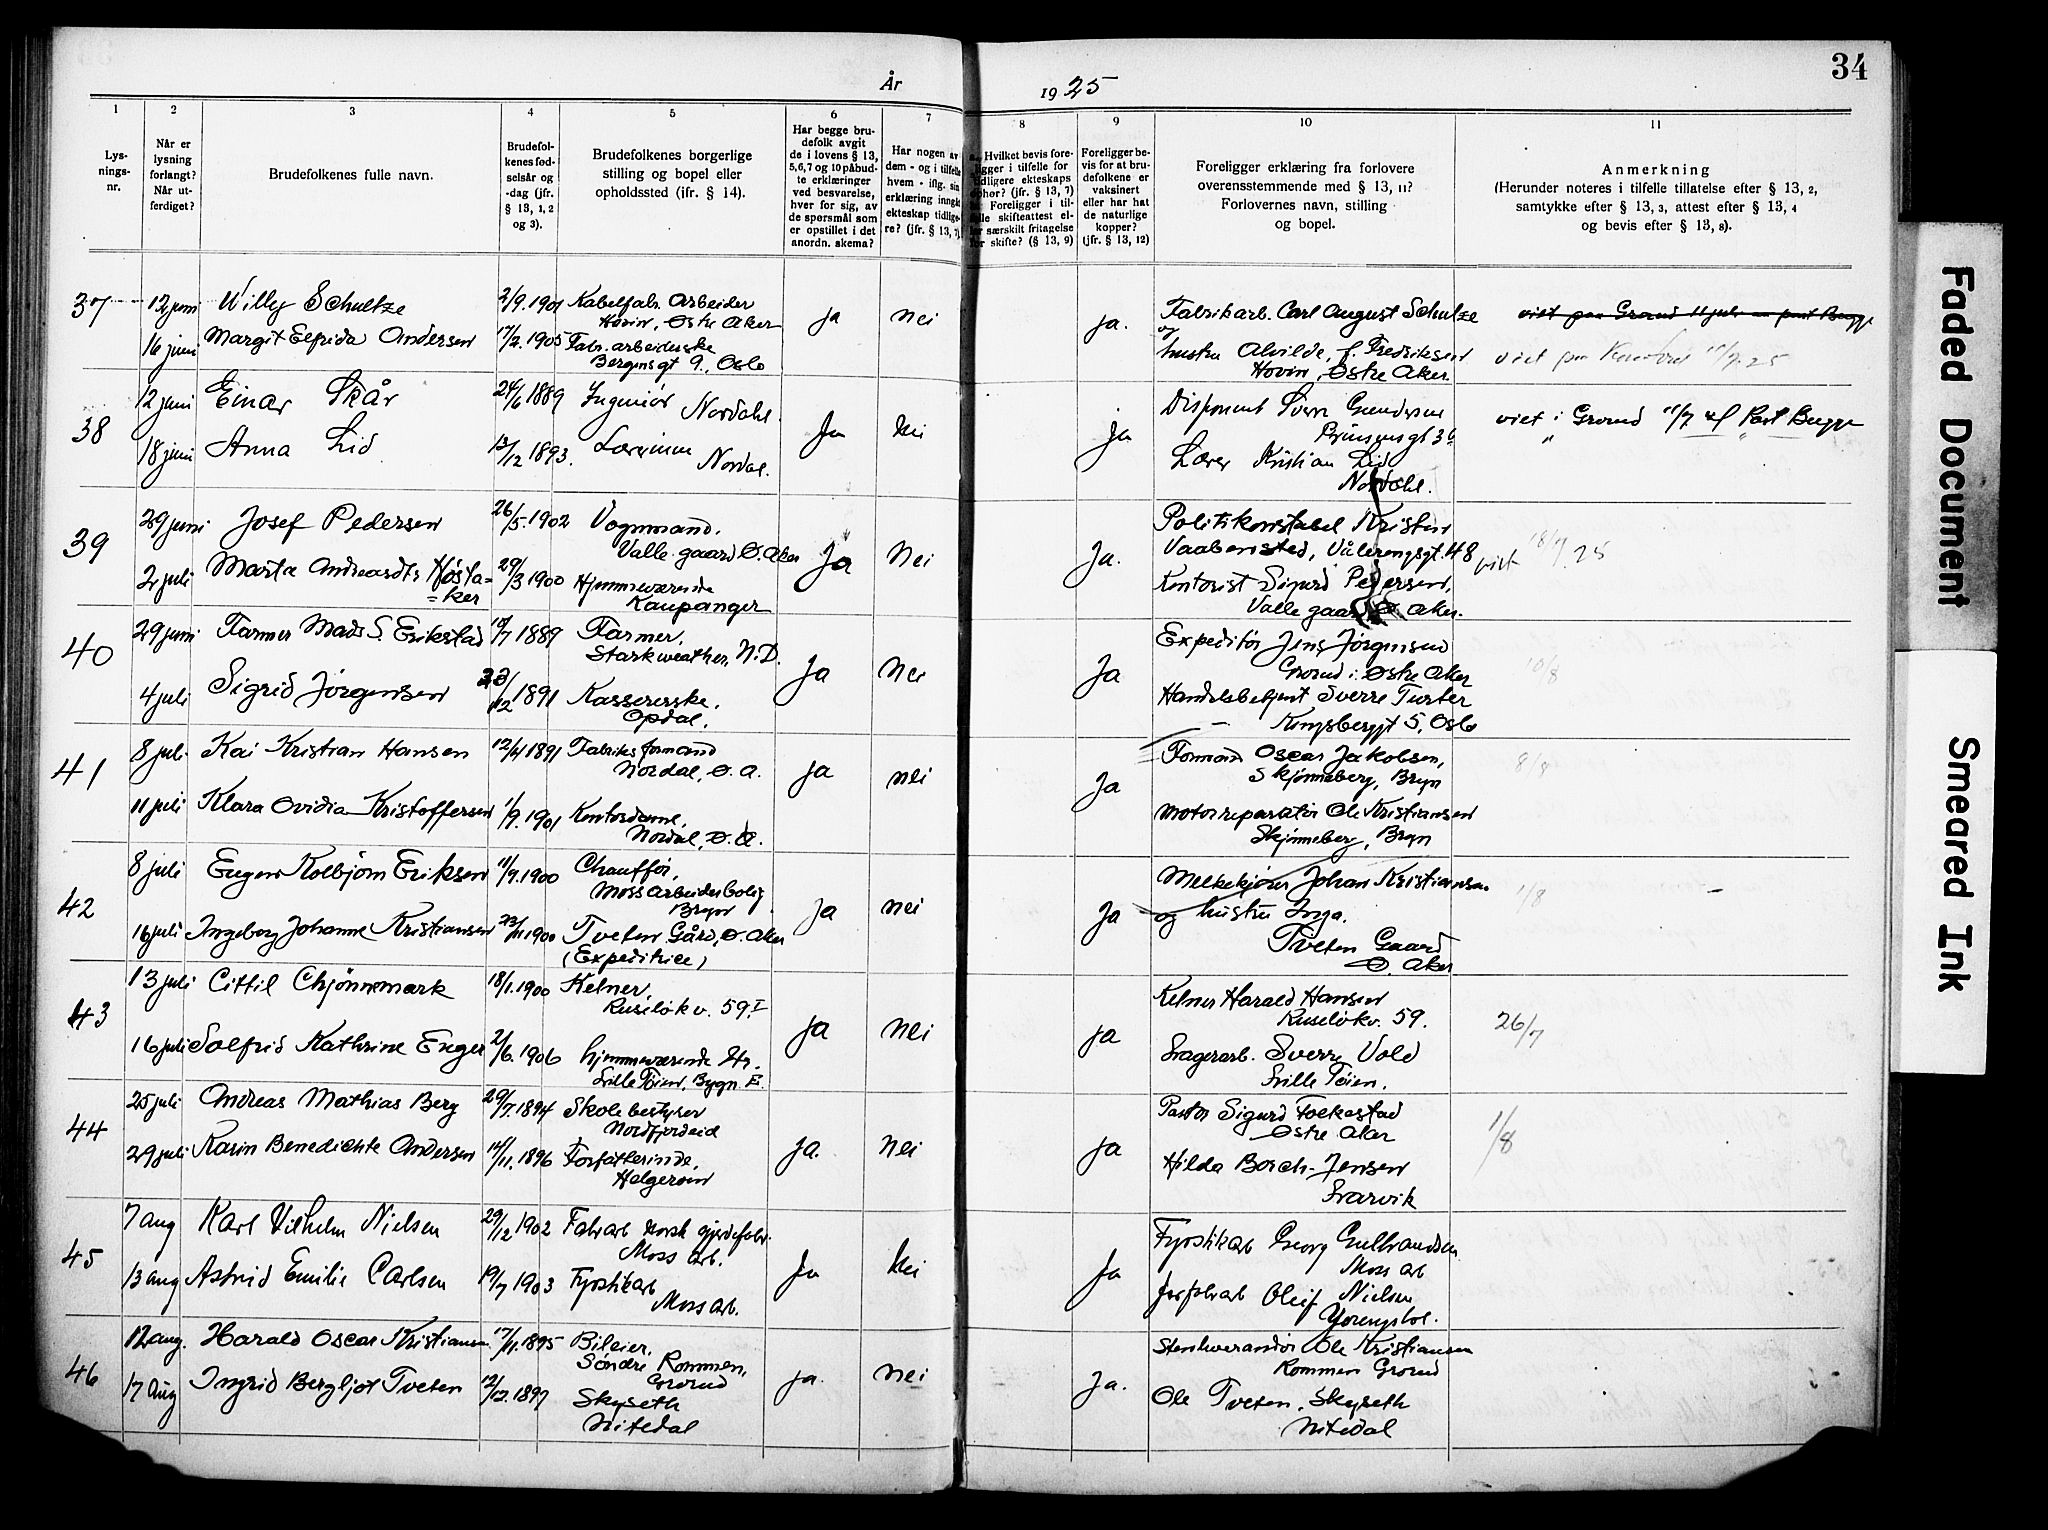 34
År 1925
1
Lys-
nings-
nr.
2
Når er
lysning
forlangt?
Når ut-
ferdiget?
3
Brudefolkenes fulle navn.
4
Brudefol-
kenes fød-
selsår og
-dag (jfr.
§ 13, 1, 2
og 3).
5
Brudefolkenes borgerlige
stilling og bopel eller
opholdssted (ifr. § 14).
6
Har begge bru-
defolk avgit
de i lovens § 13,
5,6,7 og 10 påbud-
te erklæringer
ved besvarelse,
hver for sig, av
de spørsmål som
er opstillet i det
anordn. skema?
7
Har nogen av
dem - og i tilfelle
hvem - iflg. sin
erklæring inngå
ekteskap tidlige-
re? (jfr. § 13, 7)
8
Hvilket bevis fore-
ligger i tilfelle for
tidligere ekteskaps
ophør? (jfr. § 13, 7)
Foreligger i til-
felle skifteattest el-
særskilt fritagelse
for skifte? (§ 13, 9)
9
Foreligger be-
vis for at bru-
defolkene er
vaksinert
eller har hat
de naturlige
kopper?
(jfr. § 13, 12)
10
Foreligger erklæring fra forlovere
overensstemmende med § 13, 11?
Forlovernes navn, stilling
og bopel.
11
Anmerkning
(Herunder noteres i tilfelle tillatelse efter § 13, 2,
samtykke efter § 13, 3, attest efter § 13, 4
og bevis efter § 13, 8).
37
12 juni
16 juni
Willy Schultze
Margit Elfrida Andersen
2/9.1901
17/2.1905
Kabelfabr. Arbeider
Hovin, Østre Aker
Fabr. arbeiderske
Bergensgt 9., Oslo
ja
nei
ja.
Fabrikarb. Carl August Schultze
og
hustru Alvilde, f. Fredriksen
Hovin, Østre Aker.
viet paa Grorud 11 juli
viet paa 11/7.25
38
12 juni
18 juni
Einar Skår
Anna Lid
24/6 1889
13/12 1893.
Ingeniør
Nordahl.
Lærerinne
Nordal.
Ja
Nei
Ja
Disponent Sverre Gundersen
Prinsensgt 36
Lærer Kristian Lid
Nordahl.
viet i Grorud 11/7 af Past Bugge
39
29 juni
2 juli
Josef Pedersen
Marta Andreasdtr Høsta-
=ker
26/5.1902
29/3 1900
Vognmand.
Valle gaard Ø. Aker
Hjemmeværende
Kaupanger
Ja
Nei
Ja.
Politikonstabel Kristen
Vaabensted, Vålerenggt. 48
Kontorist Sigurd Pedersen,
Valle gaard Ø. Aker.
viet 18/7.25
40
29 juni
4 juli
Farmer Mads S. Erikstad
Sigrid Jørgensen
1889
1891
Farmer,
Starkweather, N.D.
Kassererske.
Opdal.
Ja
Nei
Ja
Expeditør Jens Jørgensen
Grorud i Østre Aker
Handelsbetjent Sverre Turter
Kongsberggt 5, Oslo
10/8
41
8 juli
11 juli
Kai Kristian Hansen
Klara Ovidia Kristoffersen
12/4 1891
1/9.1901
Fabriksformand
Nordal, Ø.A.
Kontordame,
Nordal, Ø.A.
ja
nei
Ja
Formand Oscar Jakobsen,
Skjønneberg, Bryn
Motorreparatør Ole Kristiansen
Skjønneberg, Bryn
8/8
42
8 juli
16 juli
Eugen Kolbjørn Eriksen
Ingeborg Johanne Kristiansen
11/9.1900
23/11 1900
Chauffør,
Moss arbeiderbolig
Bryn
Tveten Gård, Ø. Aker
(Expeditrice)
Ja
nei
Ja
Melkekjører Johan Kristiansen
og hustru Inga.
Tveten Gaard
Ø. Aker
1/8
43
13 juli
16 juli
Cittil Chjønnmark
Solfrid Kathrine Enger
18/1.1900
2/6.1906
Kelner,
Ruseløkv. 59.I
hjemmeværende
Lille Tøien, Bygn. E.
Ja
nei
ja
Kelner Harald Hansen
Ruseløkv. 59.
Lagerarb. Sverre Vold
Lille Tøien.
26/7
44
25 juli
29 juli
Andreas Mathias Berg
Karin Benedichte Andersen
29/7.1894
14/11.1896
Skolebestyrer
Nordfjordeid
Forfatterinde,
Helgeroen
ja.
nei
ja
Pastor Sigurd Folkestad
Østre Aker
Hilda Borch-Jensen
Larvik
1/8
45
7 aug
13 aug
Karl Vilhelm Nielsen
Astrid Emilie Carlsen
29/12 1902
19/7 1903
Fabrarb Norsk gjerdefabr.
Moss arb.
Fyrstikarb
Moss arb.
Ja
Nei
Ja
Fyrstikarb Georg Gulbrandsen
Moss arb
Oleif Nielsen
46
12 aug.
17 Aug
Harald Oscar Kristiansen
Ingrid Bergljot Tveten
17/11.1895
12/12.1897
Bileier,
Søndre Rommen,
Grorud
Skyseth
Nitedal
ja.
nei
Ja.
Stenhuerandør Ole Kristiansen
Rommen Grorud
Ole Tveten, Skyseth
Nitedal
Faded Document
Smeared Ink